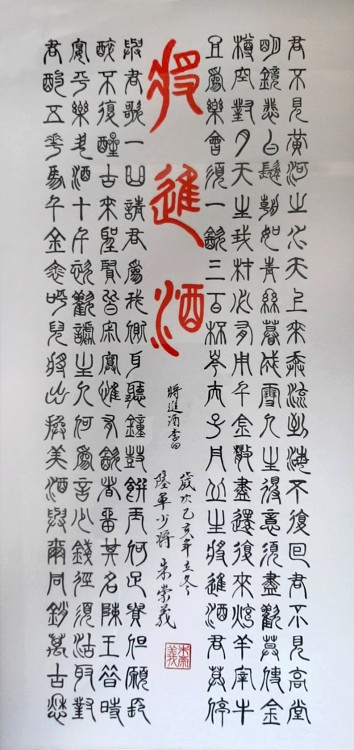 君不見黃河之水天上來奔流到海不復回君不見高堂
明鏡悲白髮朝如青絲暮成雪人生得意須盡歡莫使金
樽空對月天生我材必有用千金散盡還復來烹羊宰牛
且為樂會須一飲三百杯岑夫子丹丘生將進酒君莫停
將進酒
與君歌一曲請君為我側耳聽鐘鼓饌玉何足貴但願長
醉不復醒古來聖賢皆寂寞惟有飲者留其名陳王昔時
宴平樂斗酒十千恣歡謔主人何為言少錢徑須沽取對
君酌五花馬千金裘呼兒將出換美酒與爾同銷萬古愁
將進酒李白
歲次乙亥年立冬
陸軍少將朱崇義